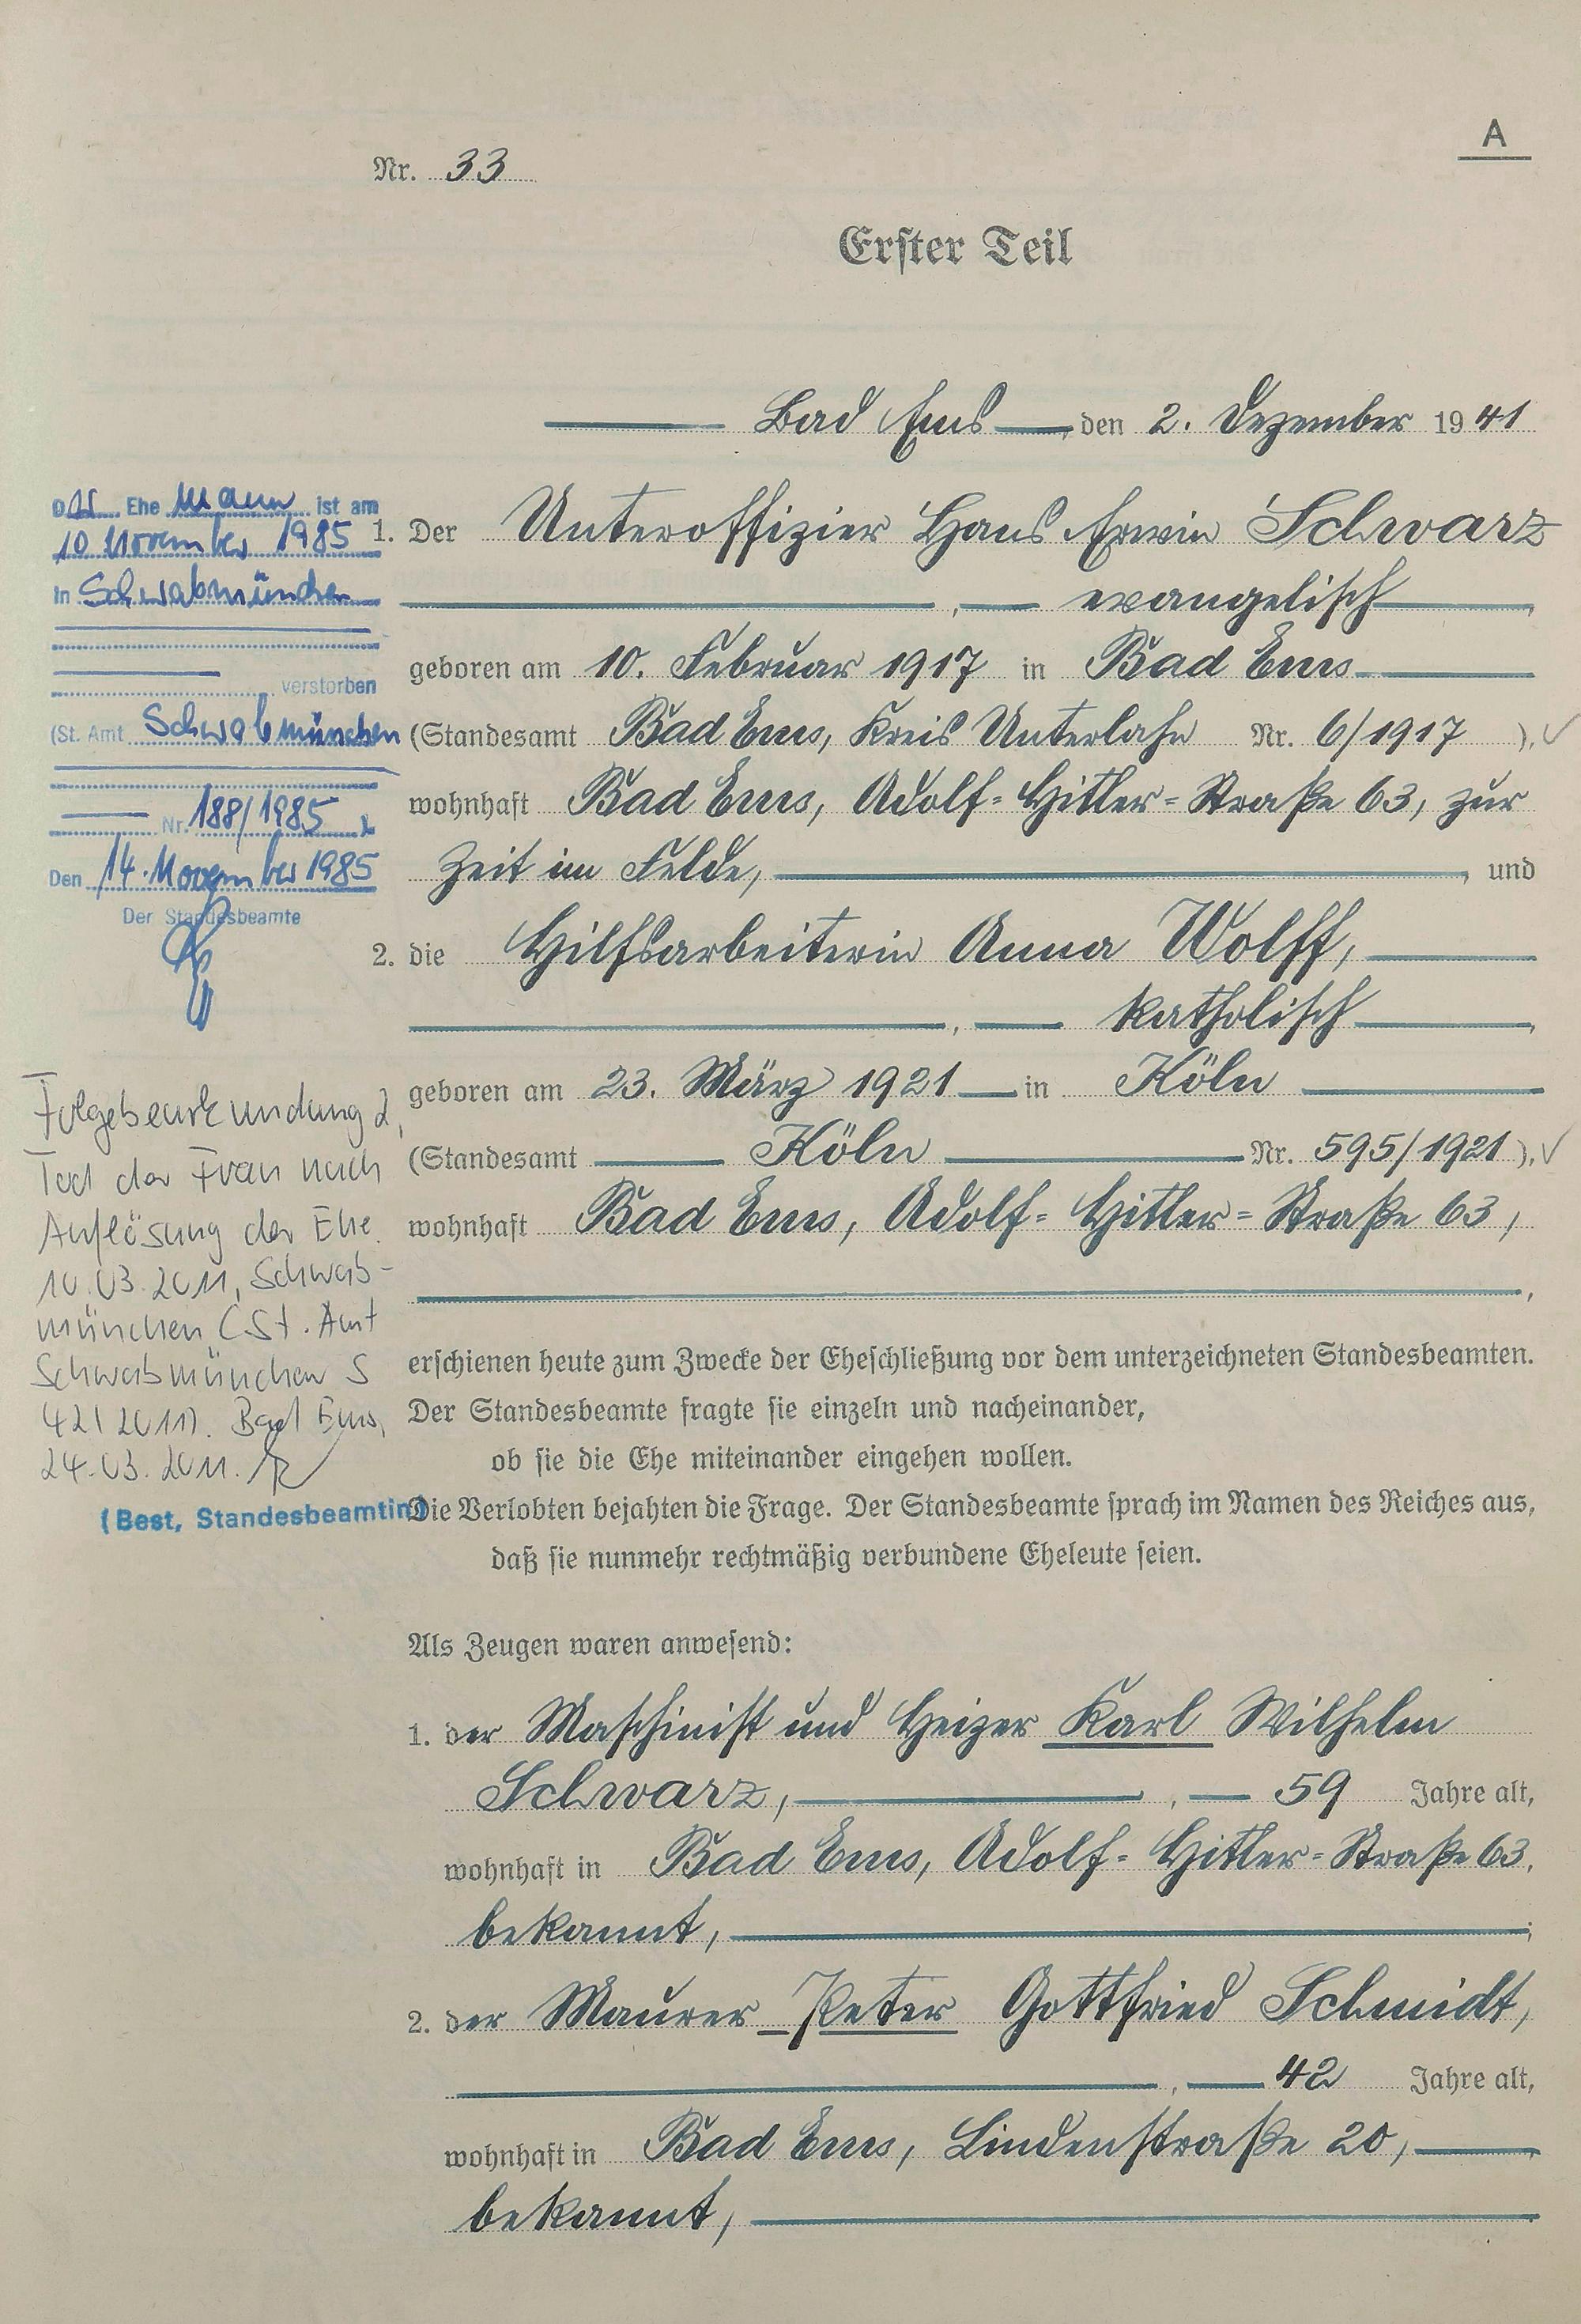 A
Nr. 33
Erster Teil
Bad Ems, den 2. Dezember 1941
1. Der Unteroffizier Hans Erwin Schwarz
, evangelisch,
geboren am 10. Februar 1917 in Bad Ems
(Standesamt Bad Ems, Kreis Unterlahn Nr. 6/1917 ),
wohnhaft Bad Ems, Adolf-Hitler-Straße 63, zur
Zeit im Felde, , und
2. die Hilfsarbeiterin Anna Wolff,
, katholisch,
geboren am 23. März 1921 in Köln
(Standesamt Köln Nr. 595/1921 ),
wohnhaft Bad Ems, Adolf-Hitler-Straße 63,
,
erschienen heute zum Zwecke der Eheschließung vor dem unterzeichneten Standesbeamten.
Der Standesbeamte fragte sie einzeln und nacheinander,
ob sie die Ehe miteinander eingehen wollen.
Die Verlobten bejahten die Frage. Der Standesbeamte sprach im Namen des Reiches aus,
daß sie nunmehr rechtmäßig verbundene Eheleute seien.
Als Zeugen waren anwesend:
1. der Maschinist und Heizer Karl Wilhelm
Schwarz, , 59 Jahre alt,
wohnhaft in Bad Ems, Adolf-Hitler-Straße 63,
bekannt, ;
2. der Maurer Peter Gottfried Schmidt,
, 42 Jahre alt,
wohnhaft in Bad Ems, Lindenstraße 20,
bekannt,
Der Ehe Mann ist am
10. November 1985
in Schwabmünchen
verstorben
(St. Amt Schwabmünchen
Nr. 188/1985 ).
Den 14. November 1985
Der Standesbeamte
Folgebeurkundung 2,
Tod der Frau nach
Auflösung der Ehe.
10.03.2011, Schwab-
münchen (St. Amt
Schwabmünchen S
42/2011). Bad Ems,
24.03.2011.
(Best, Standesbeamtin)